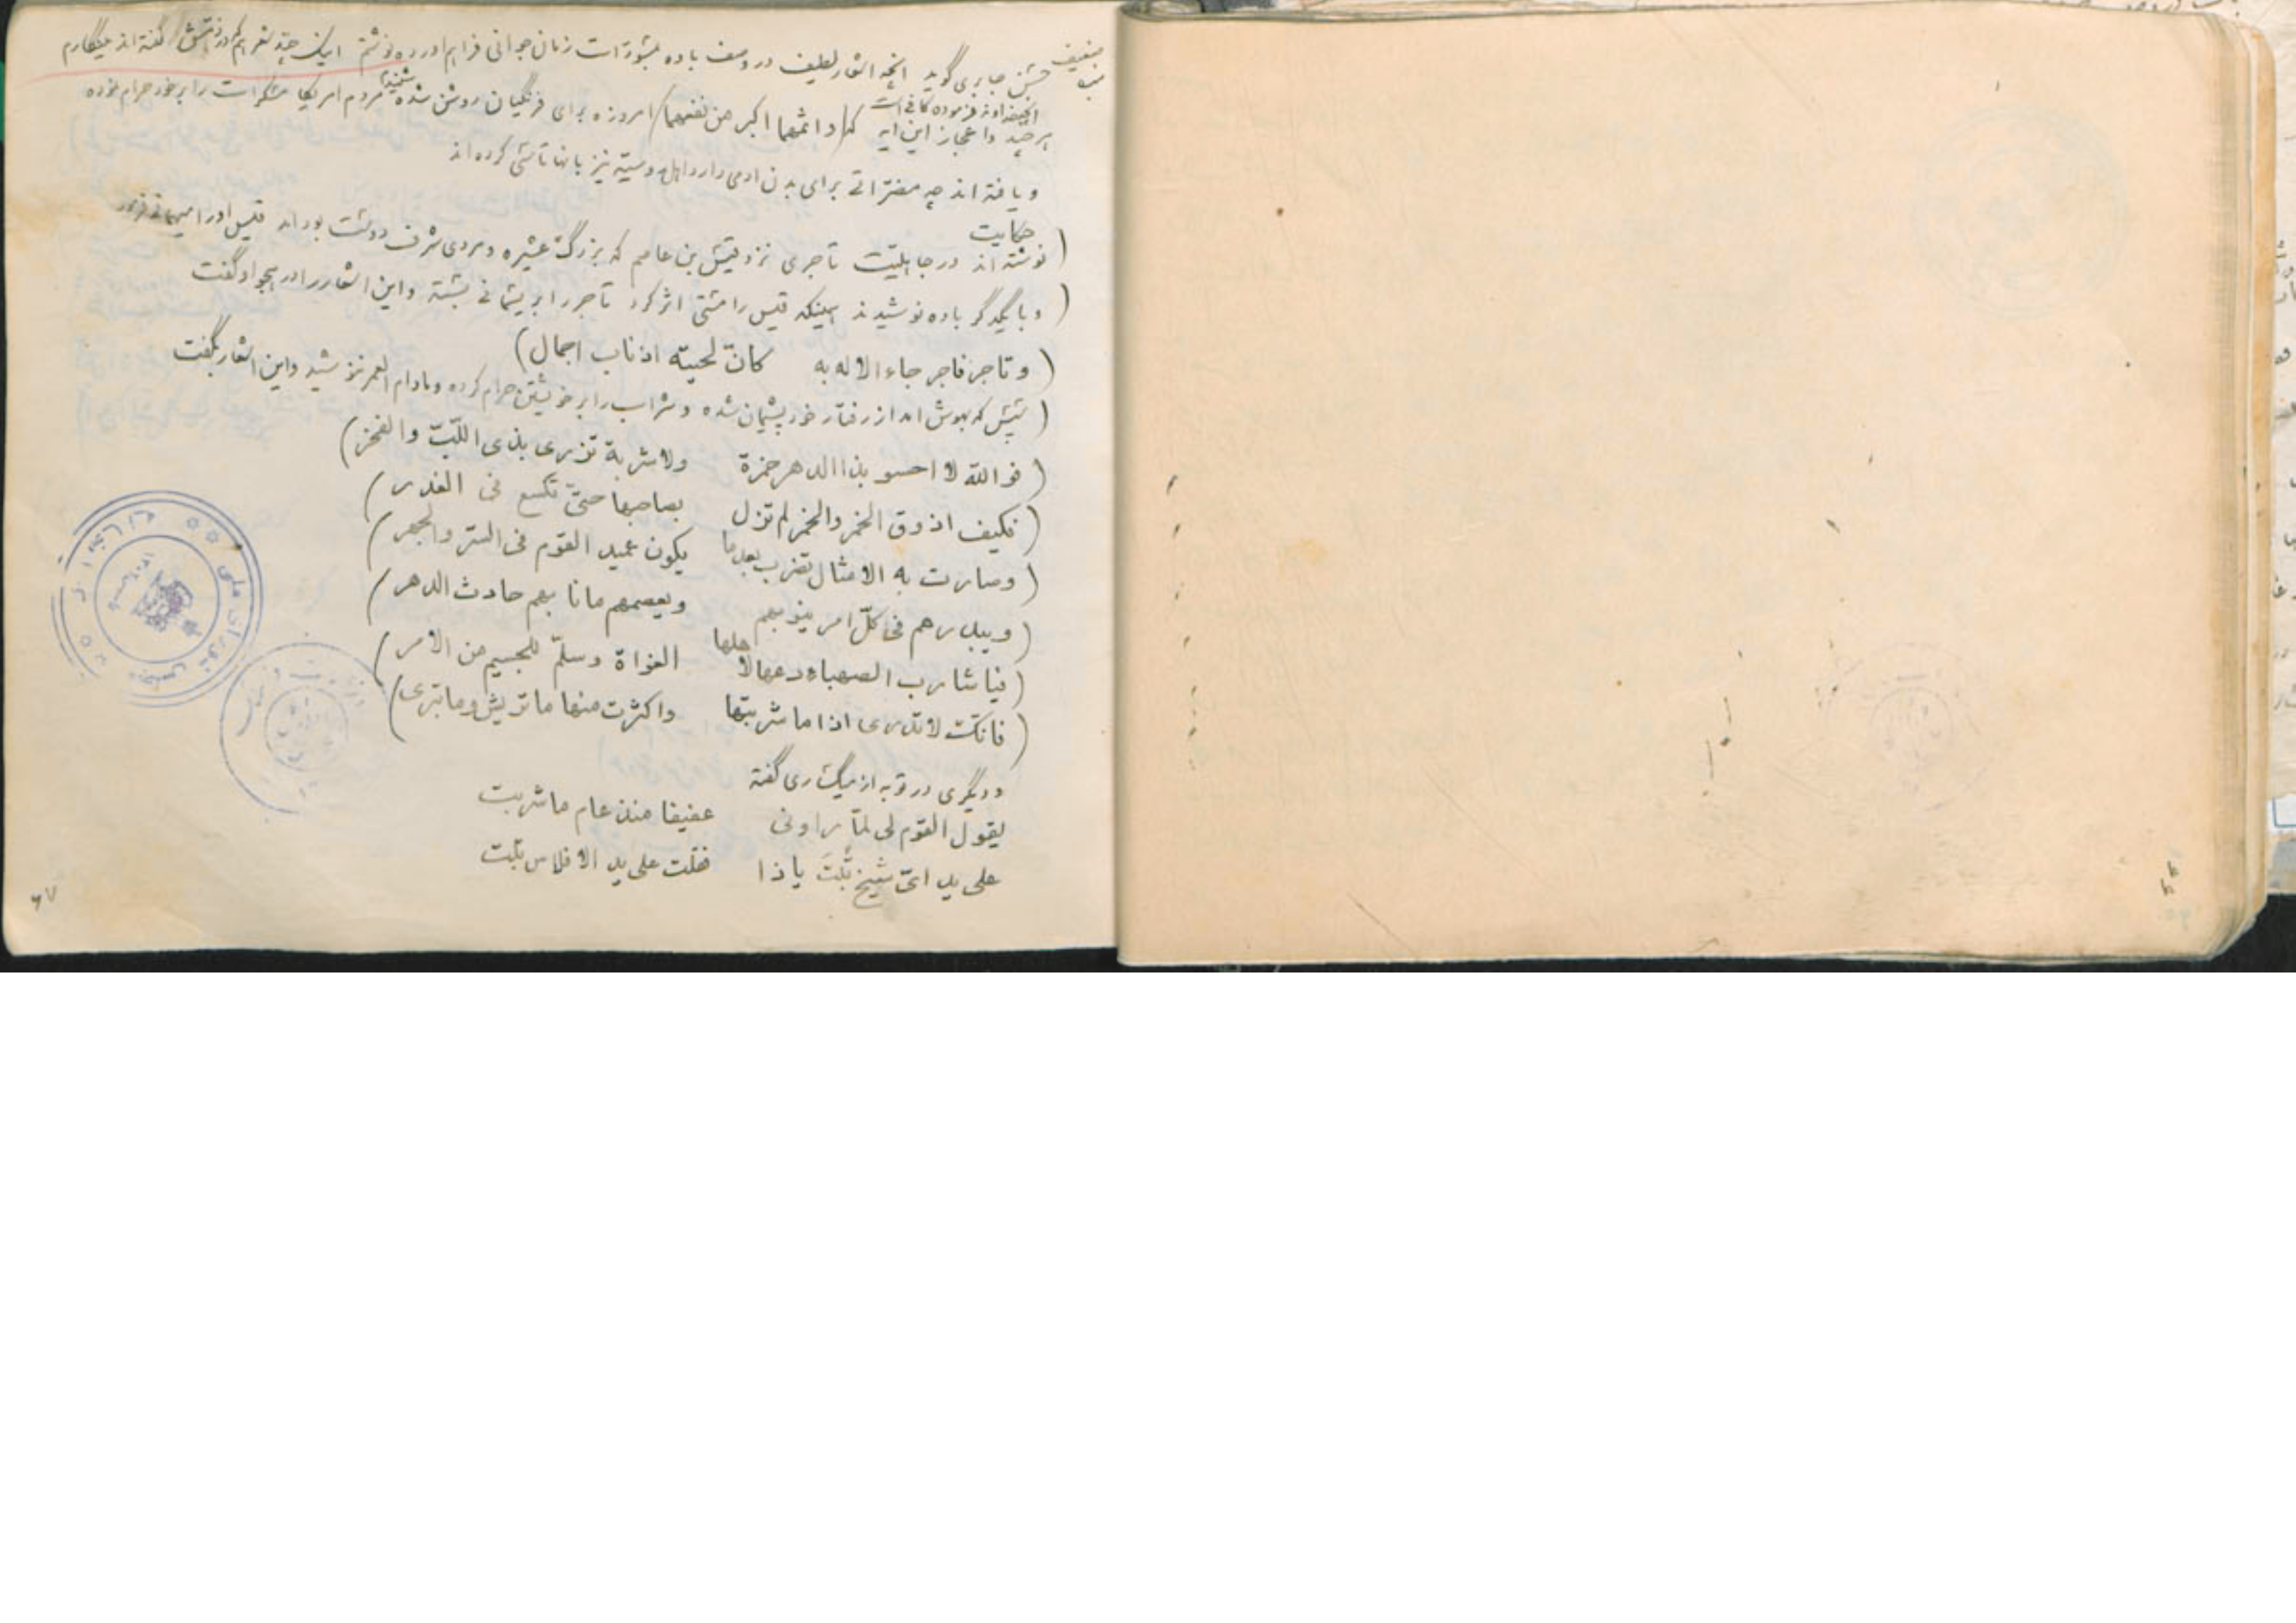 ضعیف
حسن جابری گوید آنچه اشعار لطیف در وصف باده بود است زمان جوانی فراهم آورده نوشتم اینک چند شعر هم در ذمش گفته اند مینگارم
آنچه خداوند فرموده کافی است
هر چند و اعجاز این آیه که (واثمهما اکبر من نفعهما) امروزه برای فرنگیان روشن شده مردم امریکا مسکرات را بر خود حرام نموده
و یافته اند چه مضراتی برای بدن آدمی دارد اهل روسیه نیز بآنها تأسی کرده اند
حکایت
(نوشته اند در جاهلیت تاجری نزد قیس بن عاصم که بزرگ عشیره و مردی شرف دوست بود آمد قیس او را میهمانی نمود
(و با یکدگر باده نوشیدند همینکه قیس را مستی اثر کرد تاجر را بریسمانی بسته و این اشعار را در هجو او گفت
(وتاجر فاجر جاء الاله به کانّ لحیته اذناب اجمال)
(قیس که بهوش آمد از رفتار خود پشیمان شده و شراب را بر خویشتن حرام کرده و مادام العمر ننوشید و این اشعار بگفت
(فوالله لا احسو بذا الدهر خمرة ولا شربة تزری بذی اللّبّ والفخر)
(فکیف اذوق الخمر والخمر لم تزل بصاحبها حتی تکسع فی الغدر)
(وصارت به الامثال تضرب بعدما یکون عمید القوم فی السّر والجهر)
(ویبدرهم فی کلّ امر ینوبهم ویعصمهم مانابهم حادث الدهر)
(فیا شارب الصهباء دعها لاهلها الغواة وسلّم للجسیم من الامر)
(فانّک لا تدری اذا ما شربتها واکثرت منها ما تریش وما تبری)
و دیگری در توبه از میگساری گفته
یقول القوم لی لمّا راونی عفیفا منذ عام ما شربت
علی ید ایّ شیخ تُبتَ یا ذا فقلت علی ید الافلاس تبت
۶۷